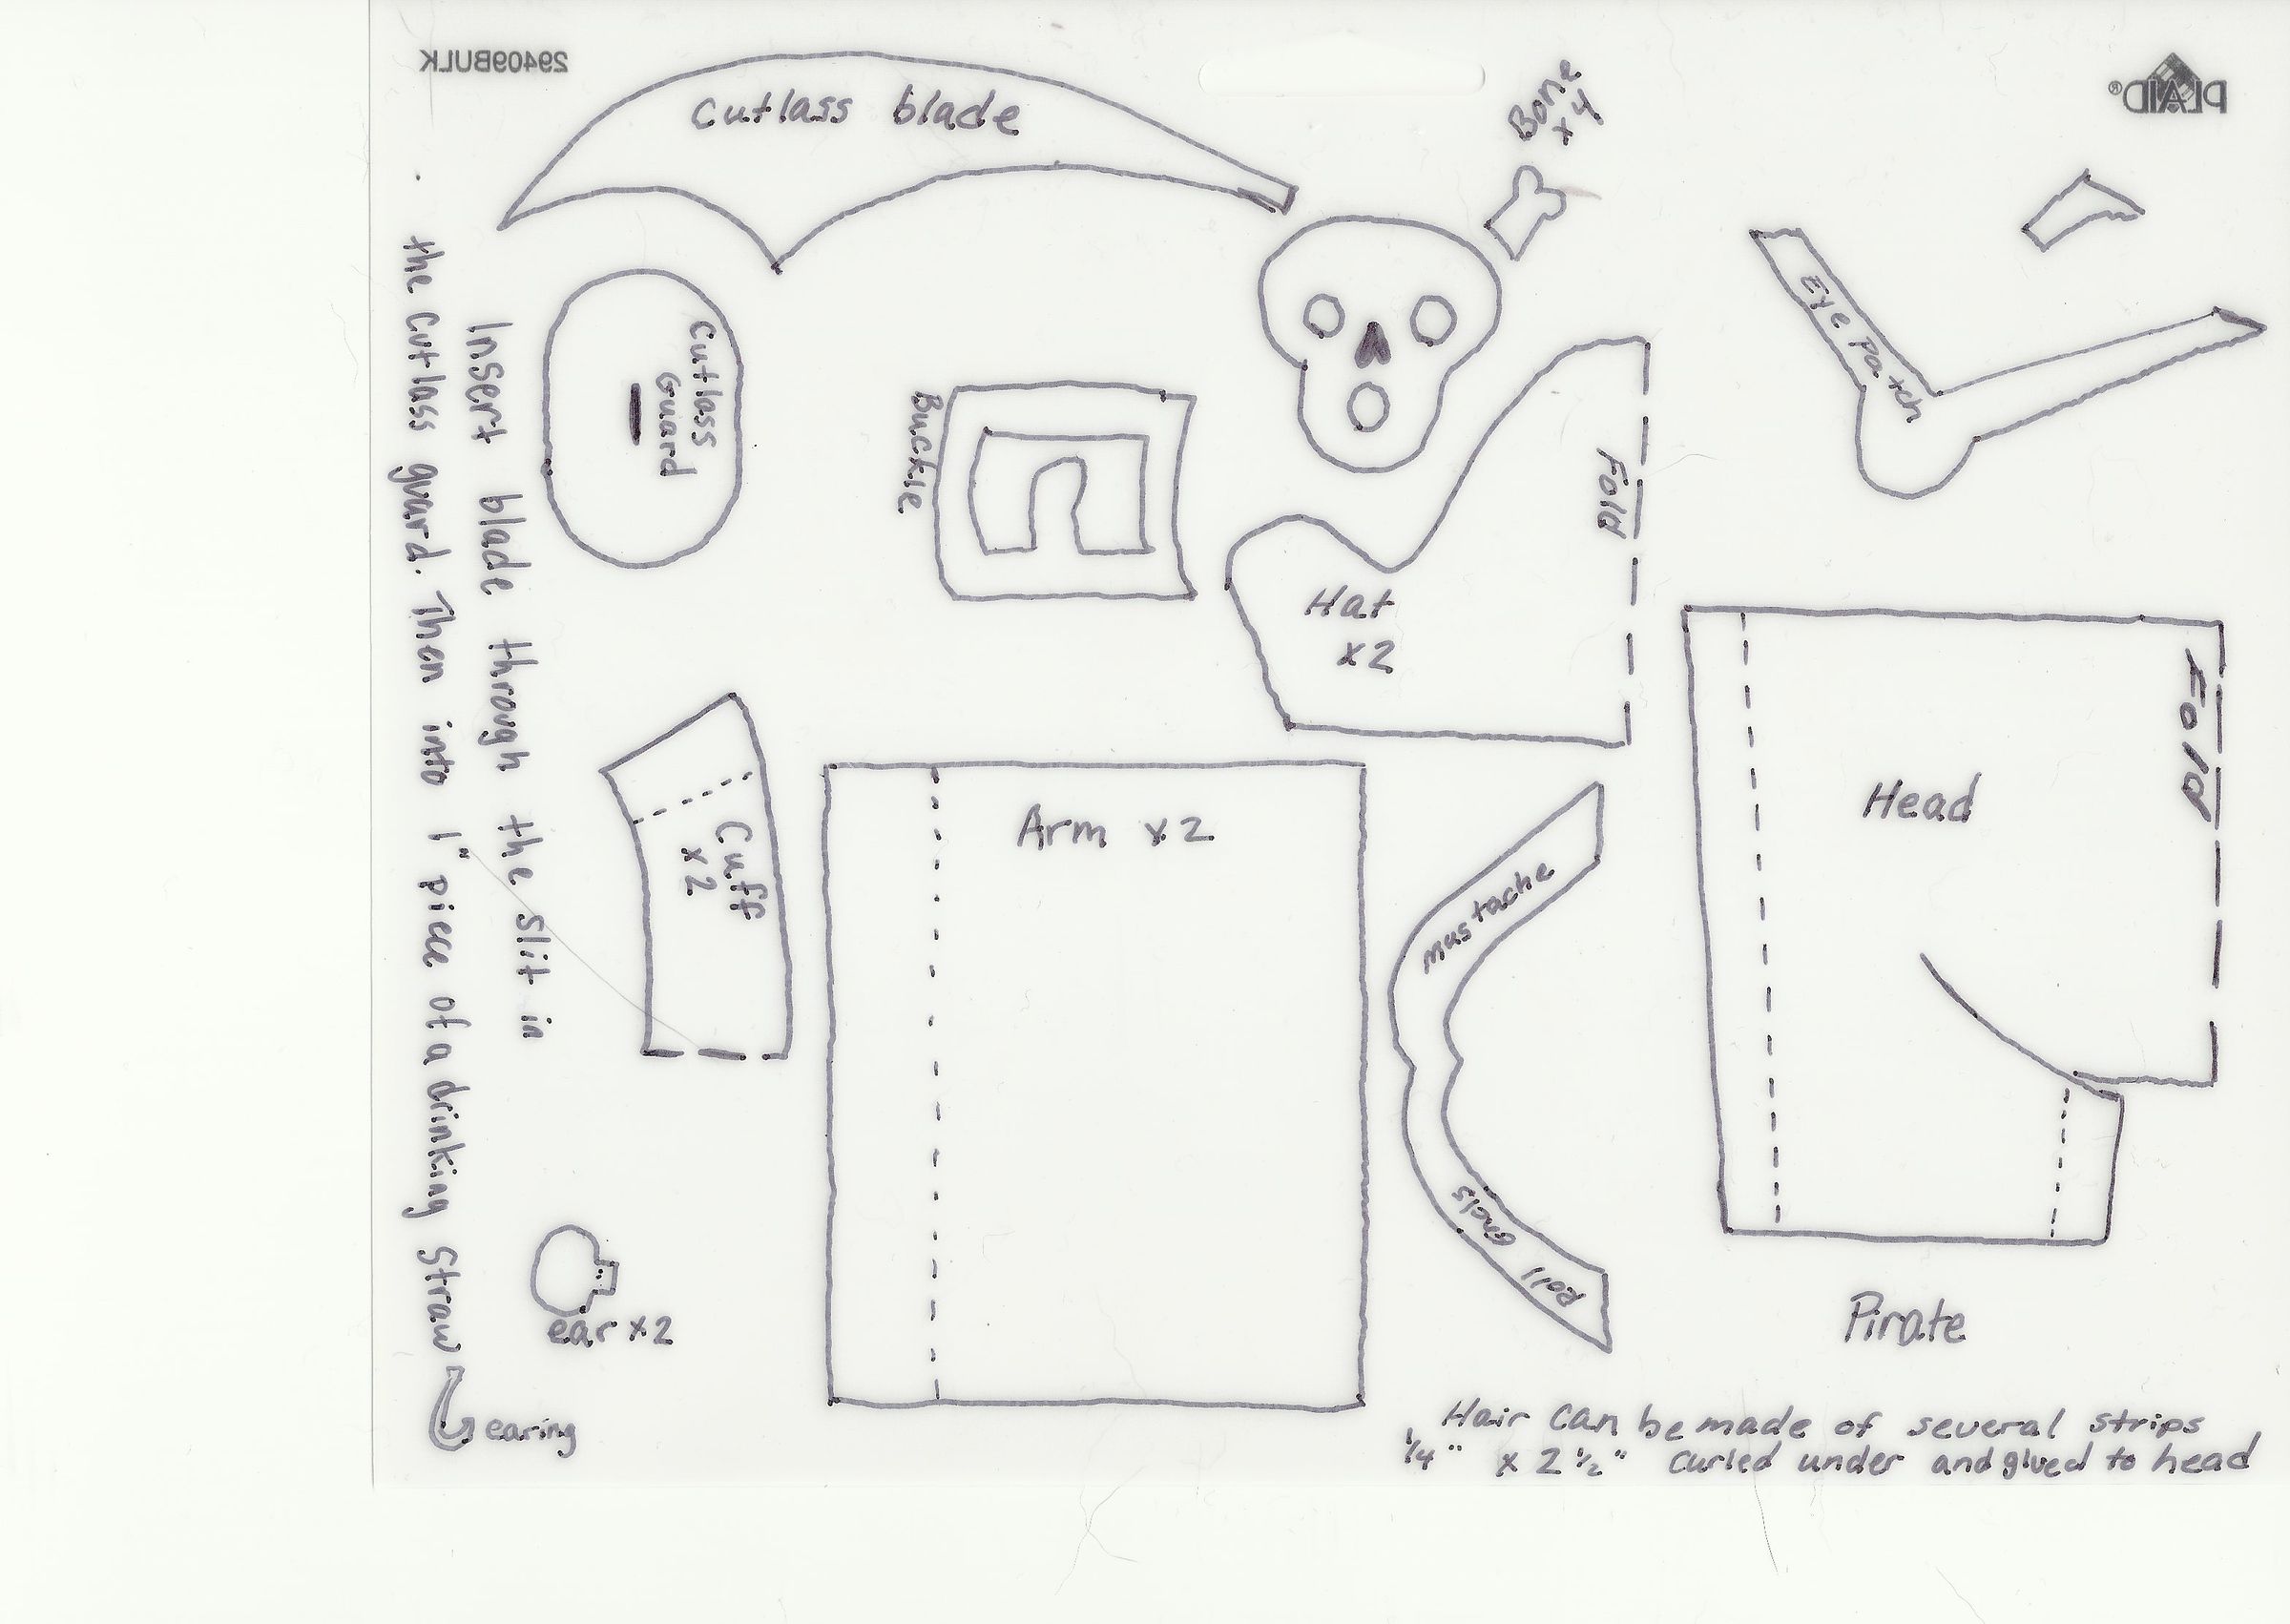 29409BULK
PLAID®
Cutlass blade
Bone
x 4
Eye Patch
Cutlass
Guard
Buckle
Fold
Hat
x2
Fold
Head
Cuff
x2
Arm x2
mustache
Roll Ends
Insert blade through the slit in
the Cutlass guard. Then into 1" piece of a drinking Straw
ear x2
earing
Pirate
Hair can be made of several strips
1/4" x 2 1/2" curled under and glued to head